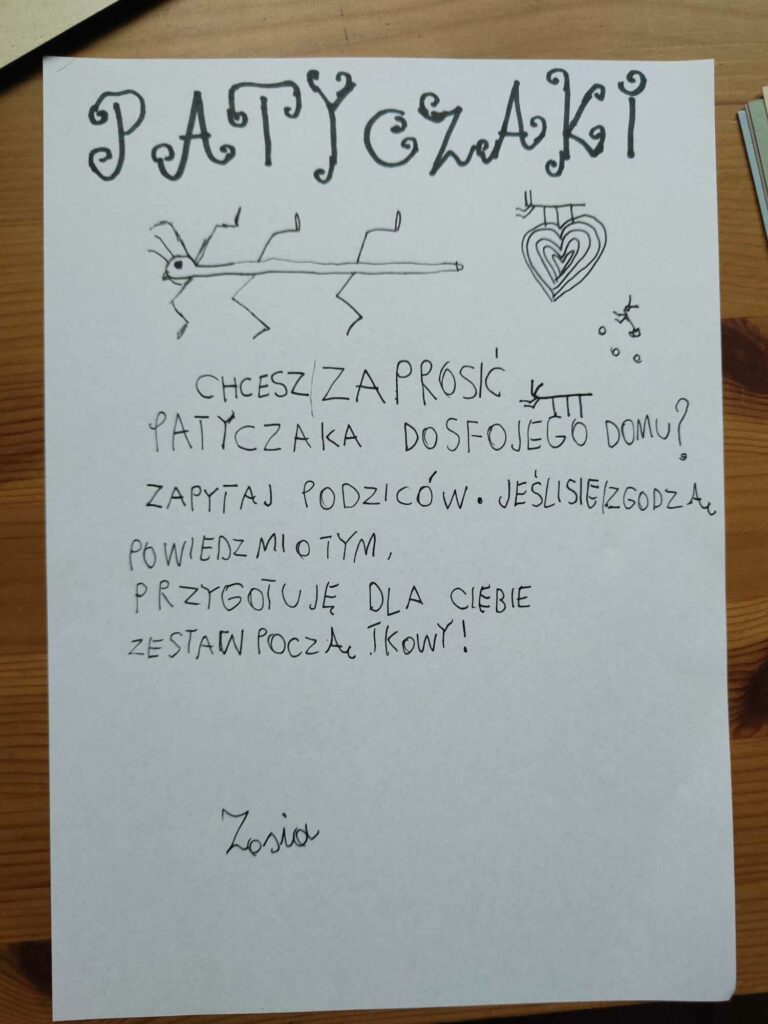 PATYCZAKI
CHCESZ/ZAPROSIĆ
PATYCZAKA DOSFOJEGO DOMU?
ZAPYTAJ PODZICÓW. JEŚLISIĘ/ZGODZĄ
POWIEDZ MI OTYM,
PRZYGOTUJĘ DLA CIĘBIE
ZESTAW POCZĄTKOWY!
Zosia